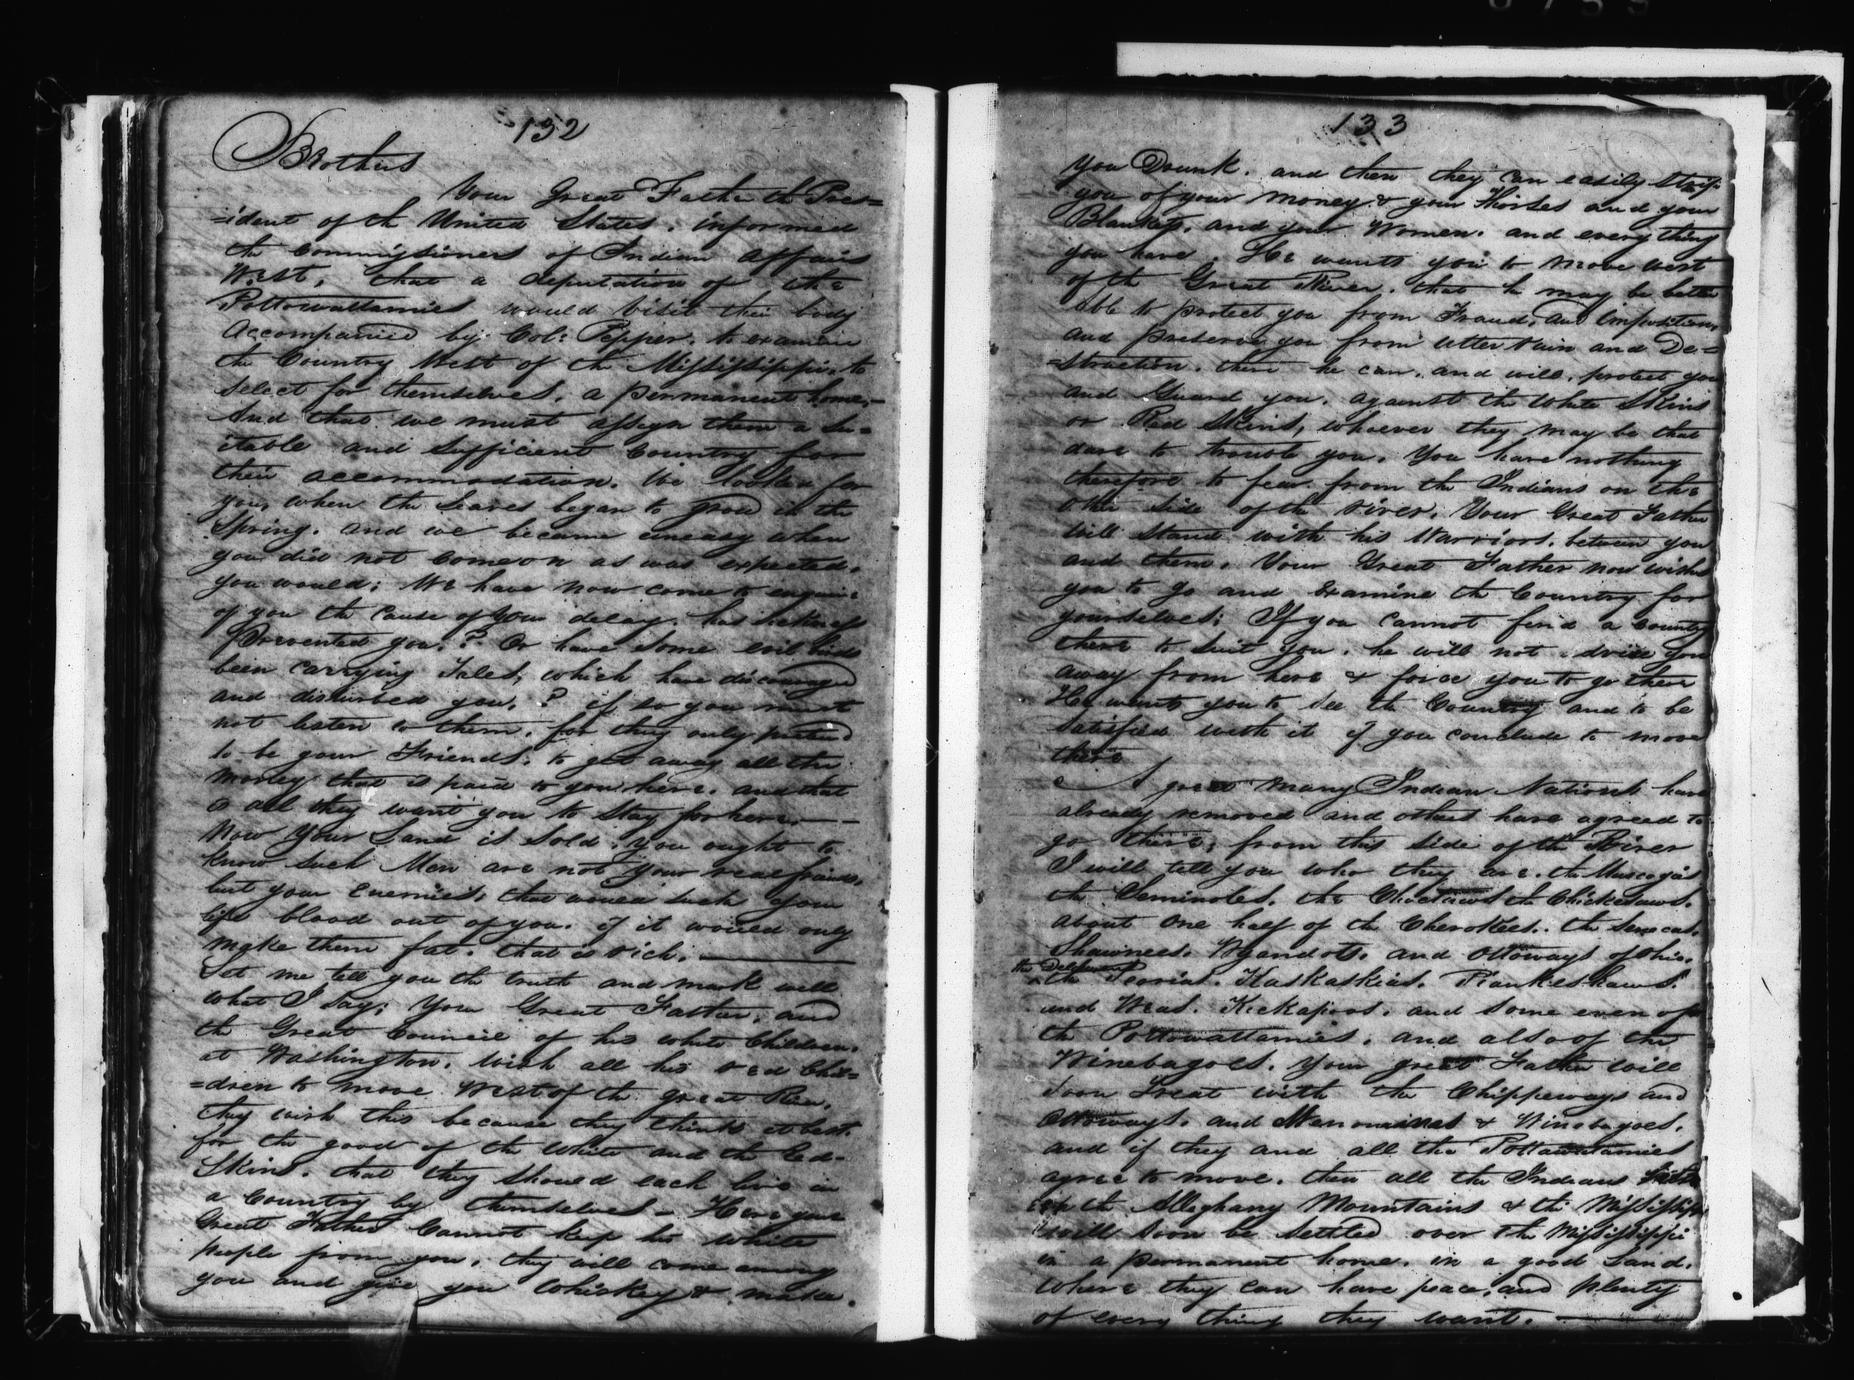 132
Brothers
Your Great Father th Pres=
=ident of th United States, informed
the Commissioners of Indian Affairs
West, that a deputation of the
Pottowattamies would visit their body
accompanied by Col: Pepper, to examine
the Country West of the Mississippi, to
select for themselves, a permanent home,-
And that we must assign them a su=
itable and sufficient Country for
their accommodation. We looked for
you, when the Leaves began to grow in the
Spring. and we became uneasy when
you did not come on as was expected,
you would; We have now come to enquire
of you the cause of your delay. has sickness
Prevented you,? Or have some evil birds
been carrying Tales, which have discouraged
and disturbed you,? if so you must
not listen to them, for they only pretend
to be your Friends, to get away all the
money that is paid to you here, and that
is all they want you to stay for here.—
Now your Land is Sold, you ought to
know such Men are not your real friends,
but your Enemies, that would suck your
life blood out of you, if it would only
make them fat, that is rich.
Let me tell you th truth and mark well
what I say; Your Great Father, and
the Great Council of his white Children,
at Washington, wish all his red Chil=
=dren to move West of the great River,
they wish this because they think it best,
for the good of the White and the Red-
Skins, that they should each live in
a Country by themselves - Here your
Great Father Cannot keep his white
people from you, they will come among
you and give you Whiskey & make
133
you Drunk, and then they can easily strip
you of your money & your Horses and your
Blankets, and your Women, and every thing
you have. He wants you to move west
of th Great River, that he may be better
able to protect you from Fraud, and Impositions,
and preserve you from utter ruin and De=
=struction. there he can, and will, protect you
and Guard you, against the White Skins
or Red Skins, whoever they may be that
dare to trouble you. You have nothing
therefore to fear from the Indians on the
other side of the river. Your Great Father
will stand with his Warriors, between you
and them. Your Great Father now wishes
you to go and examine the Country for
yourselves; If you cannot find a country
there to suit you, he will not drive you
away from here & force you to go there
He wants you to see the Country and to be
satisfied with it if you conclude to move
there
A great many Indian Nations have
already removed and others have agreed to
go there, from this side of the River
I will tell you who they are, the Muscogies
the Seminoles, the Choctaws th Chickesaws,
about one half of the Cherokees, the Senecas,
Shawnees, Wyandots, and Ottoways of Ohio,
the Delawares
the Peorias, Kaskaskias, Piankeshaws
and Weas, Kickapoos, and some even of
the Pottowattamies, and also of the
Winebagoes, Your great Father will
soon Treat with the Chippeways and
Ottoways, and Menominies & Winebagoes,
and if they and all the Pottawatamies
agree to move, then all the Indians
the Alleghany Mountains & the Mississippi
will soon be settled over the Mississippi
in a permanent home, in a good Land,
where they can have peace, and plenty
of every thing they want.